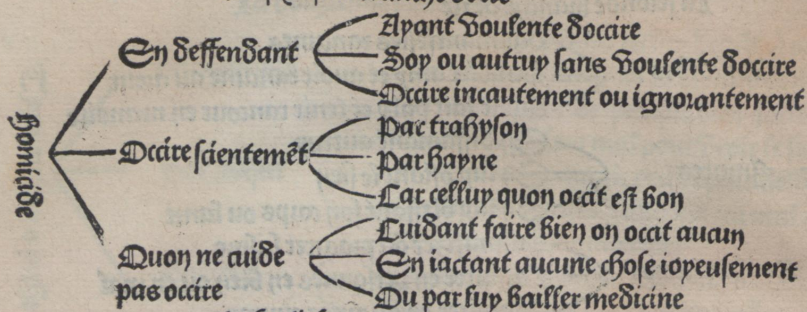 homicide
En deffendant
Ayant voulente doccire
Soy ou autruy sans voulente doccire
Occire incautement ou ignorantement
Occire scientemēt
Par trahyson
Par hayne
Car celluy quon occit est bon
Quon ne cuide
pas occire
Cuidant faire bien on occit aucun
En iactant aucune chose ioyeusement
Ou par luy bailler medicine